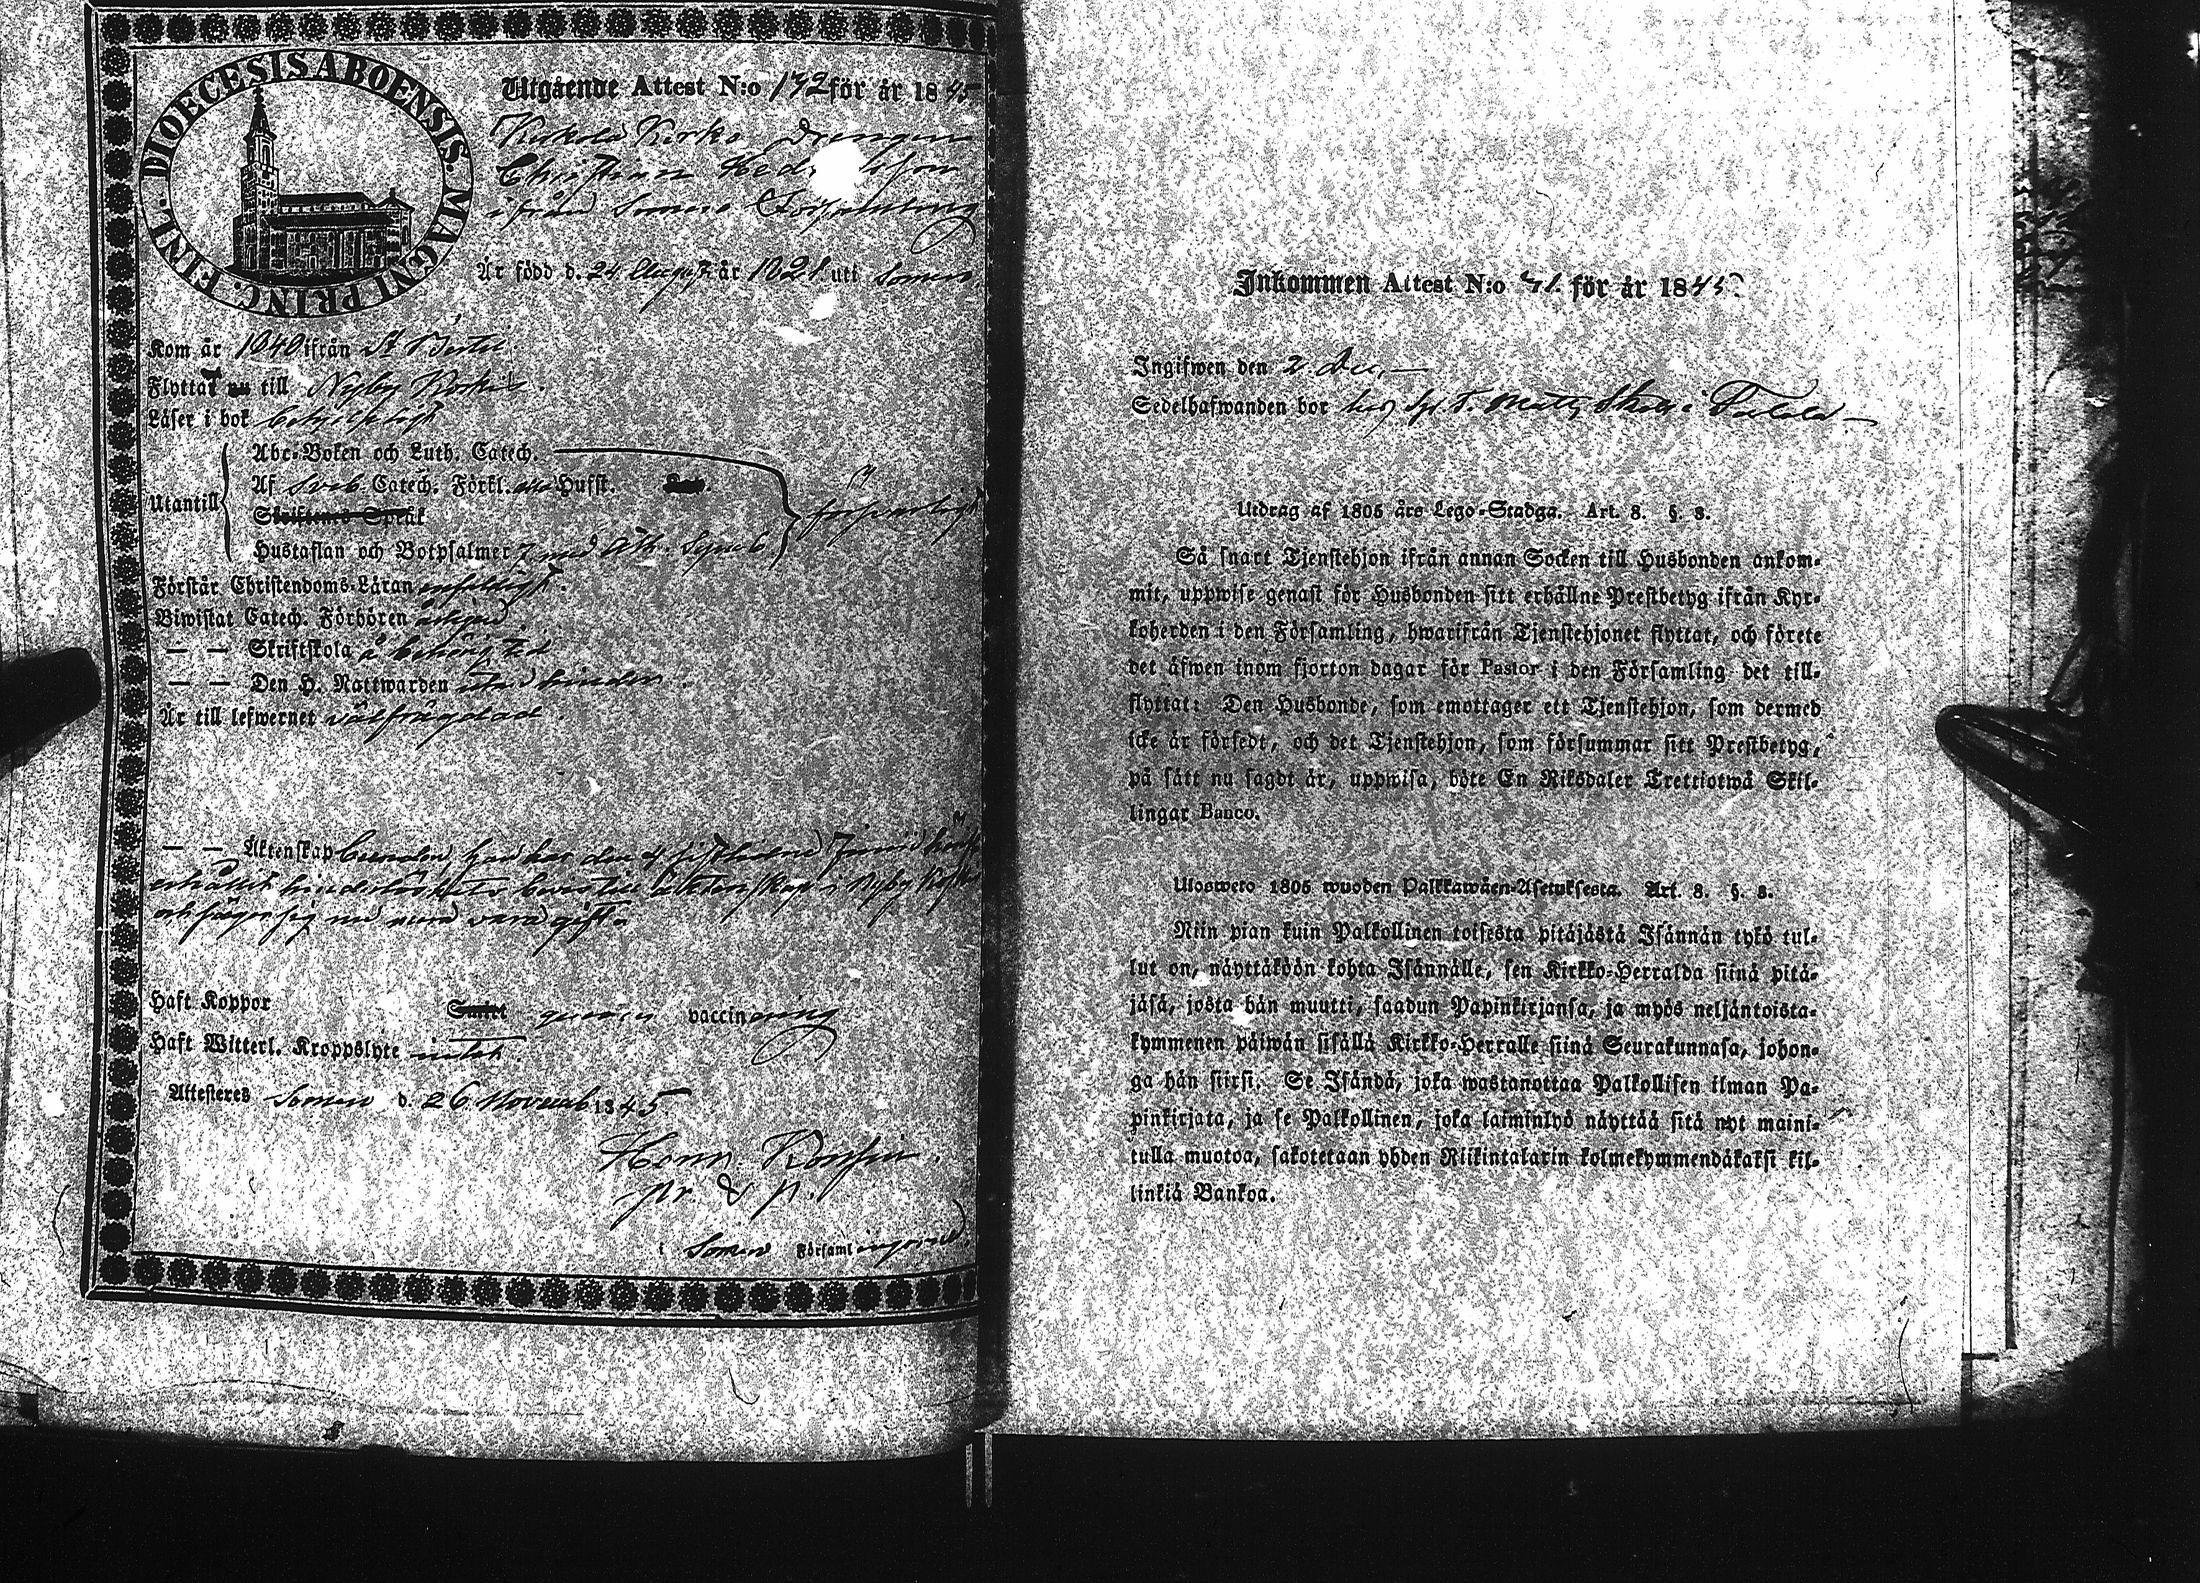 DIOECESIS ABOENSIS. MAGNI PRINC. FINL.
Utgående Attest N:o 142 för år 1845
Drengen
Christian
ifrån Somero
Är född d. 24 August år 1821 uti Somero
Kom år 1840 ifrån St Bertil
Flyttat nu till Nyby Kirkis.
Läser i bok
Utantill
Abc-Boken och Luth. Catech.
Af Sveb. Catech. Förkl. Husst.
försvarligt
Skriftenes Språk
Hustaflan och Botpsalmer 7 med Ath. Symb
Förstår Christendoms-Läran enfaldigt.
Biwistat Catech. Förhören årligen
— — Skriftskola å behörig tid
— — Den H. Nattwarden utan hinder.
Är till lefwernet välfrägdad.
— — Äktenskap bunden, har den 4 sistledne Junii
erhållit hinderlöshets bevis till äktenskap i Nyby
och säger sig nu mera vara gift.
Haft Koppor Smitt genom vaccinering
Haft Witterl. Kroppslyte intet.
Attesteres Somero d. 26 Novemb 1845
Henr.
i Somero Församl
Inkommen Attest N:o 41. för år 1845.
Ingifwen den 2 Dec. —
Sedelhafwanden bor hos Matts i
Utdrag af 1805 års Lego-Stadga. Art. 8. §. 8.
Så snart Tjenstehjon ifrån annan Socken till Husbonden ankom-
mit, uppwise genast för Husbonden sitt erhållne Prestbetyg ifrån Kyr-
koherden i den Församling, hwarifrån Tjenstehjonet flyttat, och förete
det äfwen inom fjorton dagar för Pastor i den Församling det till-
flyttat: Den Husbonde, som emottager ett Tjenstehjon, som dermed
icke är försedt, och det Tjenstehjon, som försummar sitt Prestbetyg,
på sätt nu sagdt är, uppwisa, böte En Riksdaler Trettiotwå Skil-
lingar Banco.
Ulosweto 1805 wuoden Palkkawäen-Asetuksesta. Art. 8. §. 8.
Niin pian kuin Palkollinen toisesta pitäjästä Isännän tykö tul-
lut on, näyttäköön kohta Isännälle, sen Kirkko-Herralda siinä pitä-
jäsä, josta hän muutti, saadun Papinkirjansa, ja myös neljäntoista-
kymmenen päiwän sisällä Kirkko-Herralle siinä Seurakunnasa, johon-
ga hän siirsi. Se Isändä, joka wastanottaa Palkollisen ilman Pa-
pinkirjata, ja se Palkollinen, joka laiminlyö näyttää sitä nyt maini-
tulla muotoa, sakotetaan yhden Riikintalarin kolmekymmendäkaksi kil-
linkiä Bankoa.